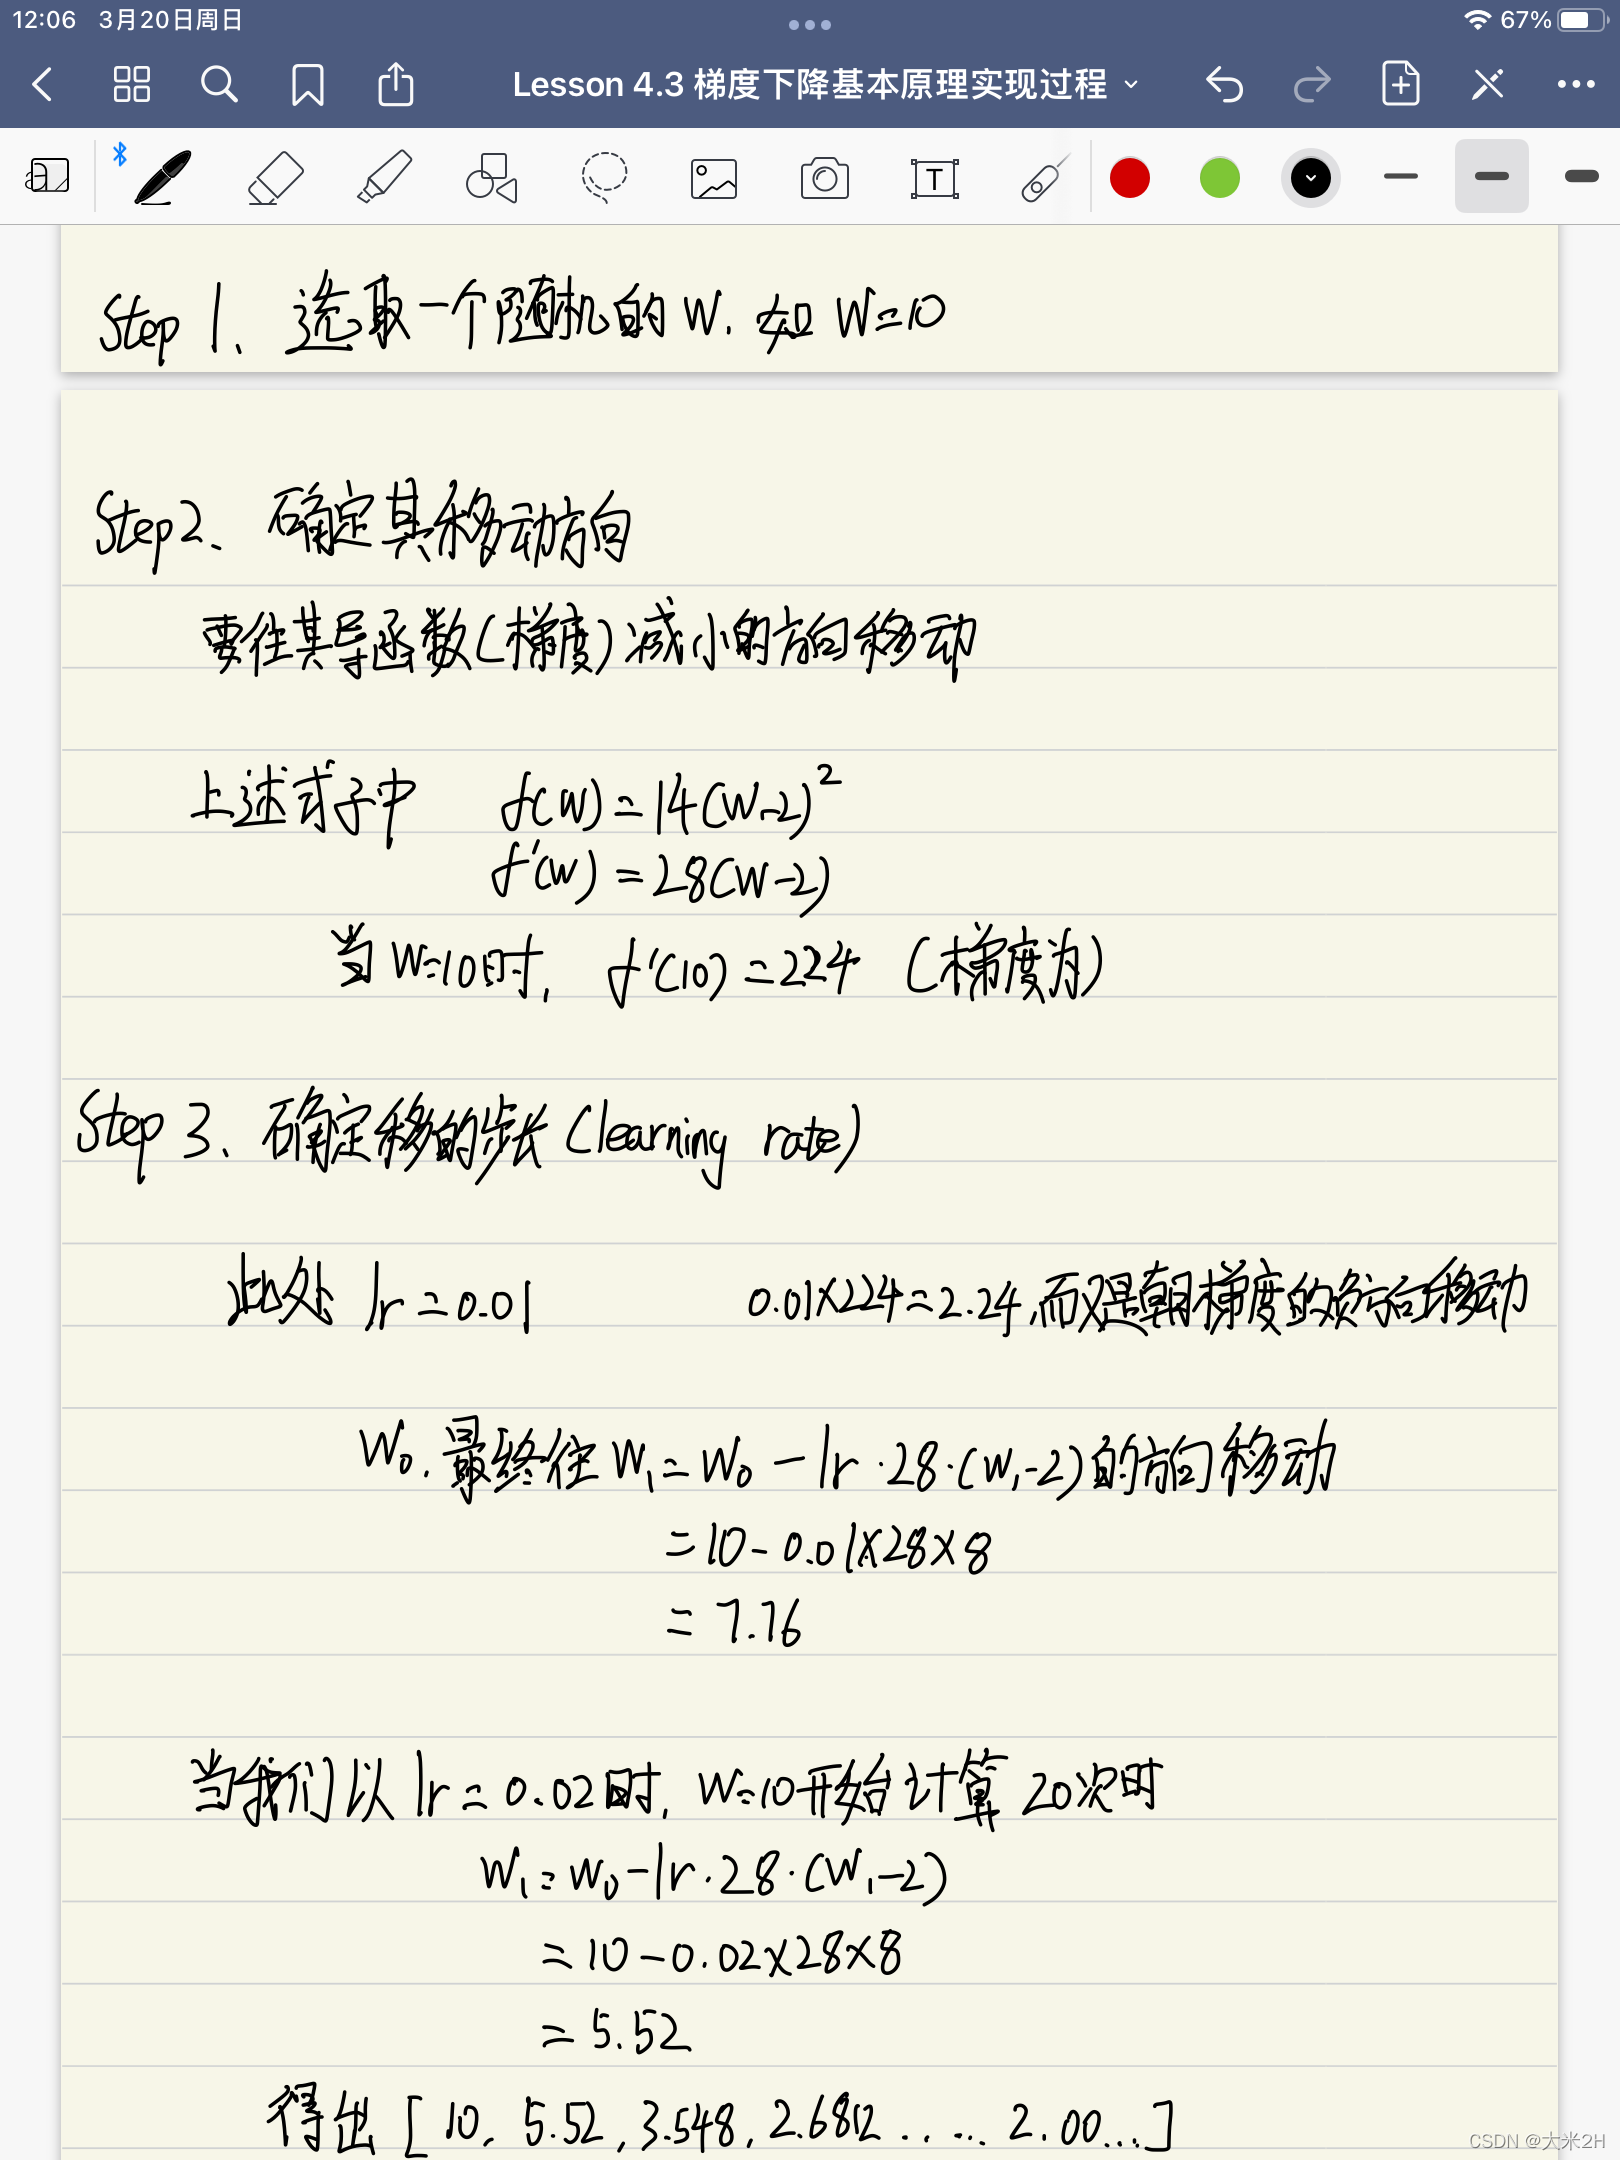 12:06 3月20日周日 67%
Lesson 4.3 梯度下降基本原理实现过程
Step 1、选取一个随机的 W. 如 W=10
Step2、确定其移动方向
要往其导函数(梯度)减小的方向移动
上述式子中 f(W)=14(W-2)²
f'(W)=28(W-2)
当 W=10时, f'(10)=224 (梯度为)
Step 3、确定移的步长 (learning rate)
此处 lr=0.01 0.01×224=2.24,而又是朝梯度的负方向移动
W₀.最终往 W₁=W₀-lr·28·(W₁-2)的方向移动
=10-0.01×28×8
=7.76
当我们以 lr=0.02时, W=10开始计算 20次时
W₁=W₀-lr·28·(W₁-2)
=10-0.02×28×8
=5.52
得出 [10, 5.52, 3.548, 2.6812..... 2.00...]
CSDN @大米2H